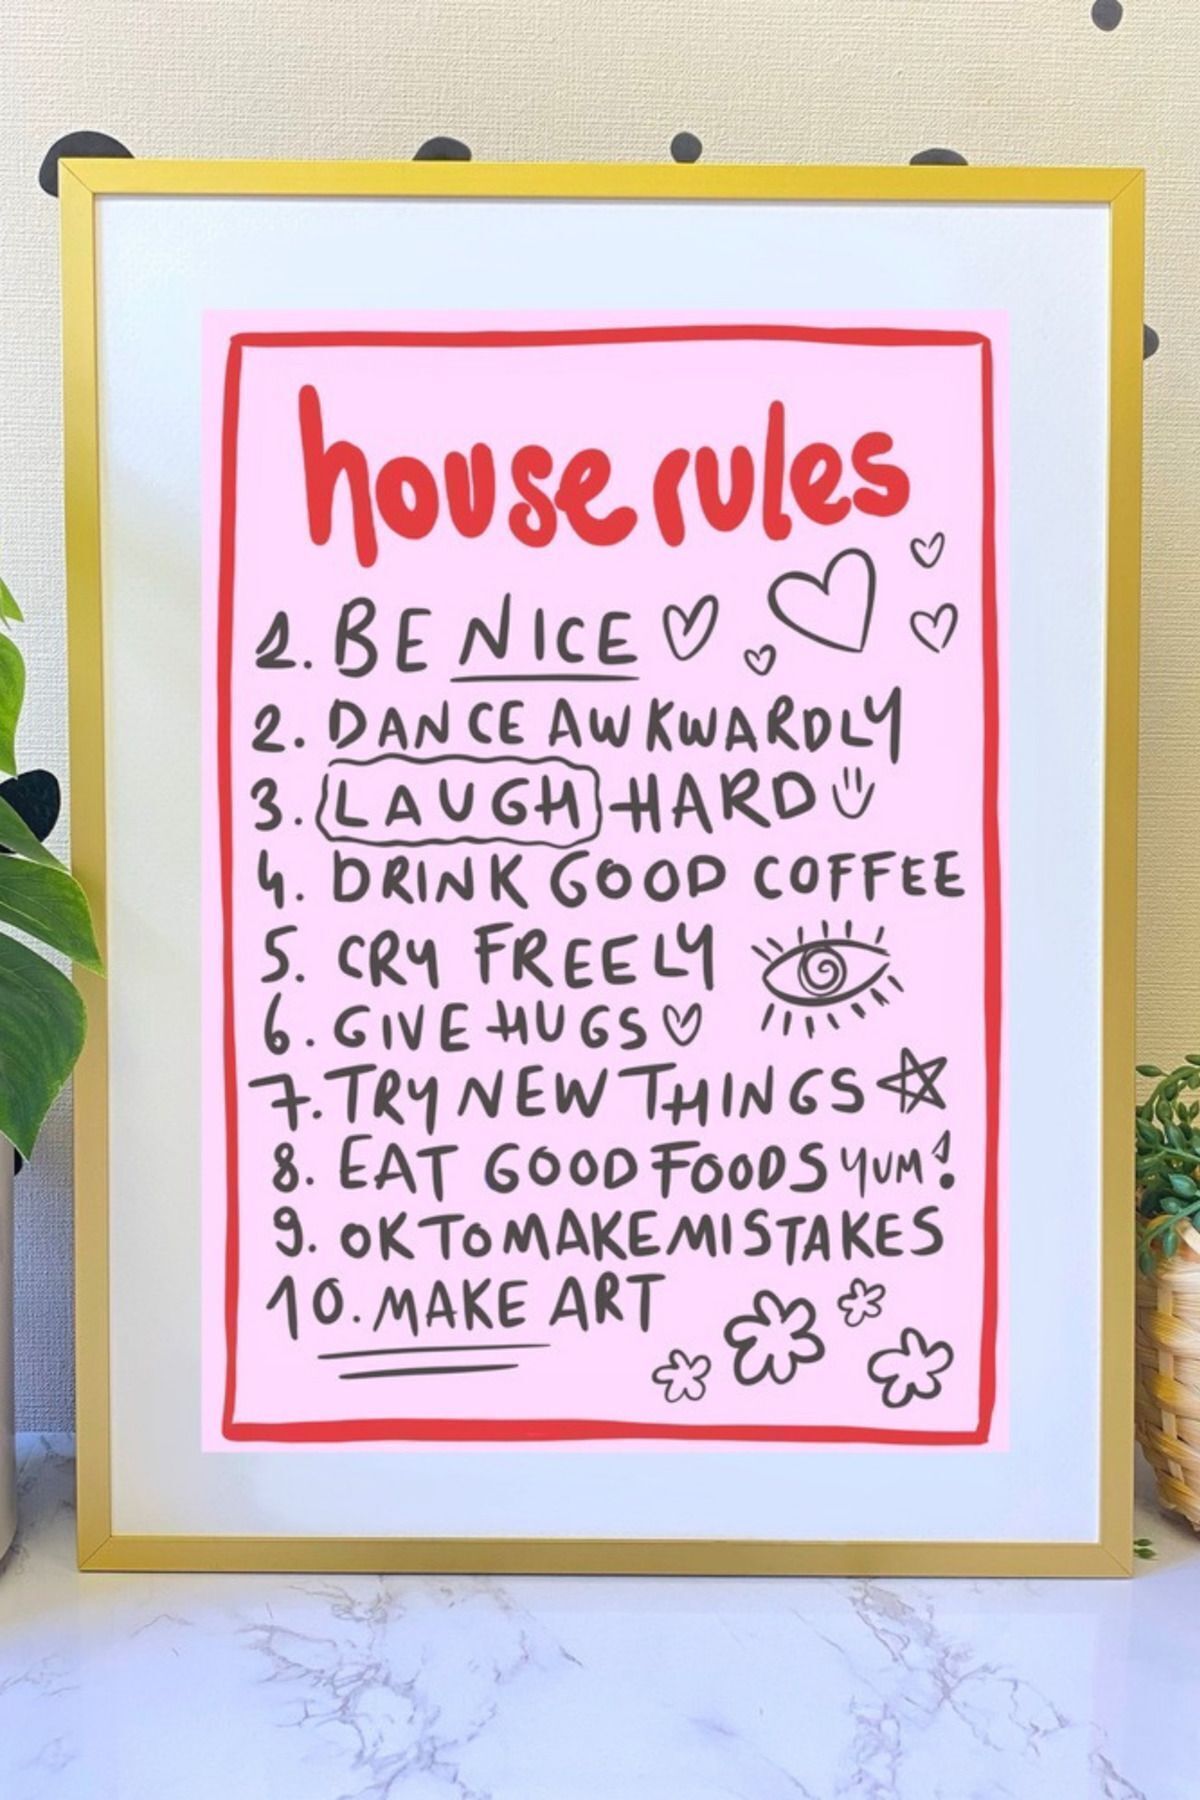 house rules
1. BE NICE
2. DANCE AWKWARDLY
3. LAUGH HARD
4. DRINK GOOD COFFEE
5. CRY FREELY
6. GIVE HUGS
7. TRY NEW THINGS
8. EAT GOOD FOODS YUM!
9. OK TO MAKE MISTAKES
10. MAKE ART